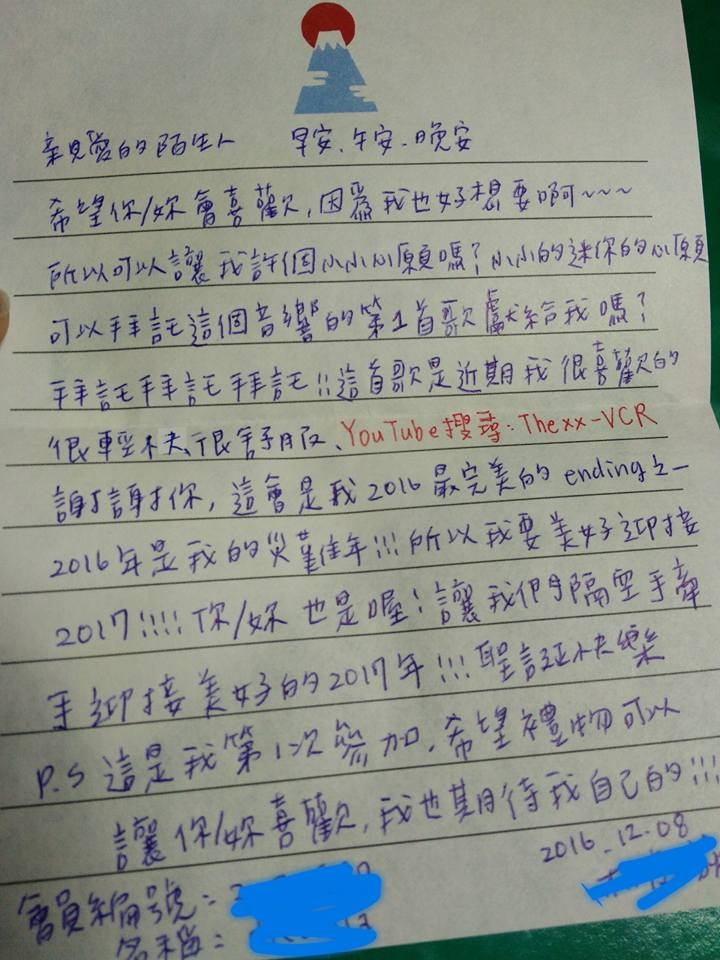 親愛的陌生人 早安、午安、晚安
希望你/妳會喜歡,因為我也好想要啊~~~
所以可以讓我許個小小心願嗎?小小的迷你的心願
可以拜託這個音響的第1首歌獻給我嗎?
拜託拜託拜託!!這首歌是近期我很喜歡的
很輕快、很舒服、YouTube搜尋:The xx-VCR
謝謝你,這會是我2016最完美的ending之一
2016年是我的災難年!!!所以我要美好迎接
2017!!!!你/妳也是喔!讓我們隔空手牽
手迎接美好的2017年!!!聖誕快樂
P.S 這是我第1次參加,希望禮物可以
讓你/妳喜歡,我也期待我自己的!!!
2016.12.08
會員編號:
名稱: